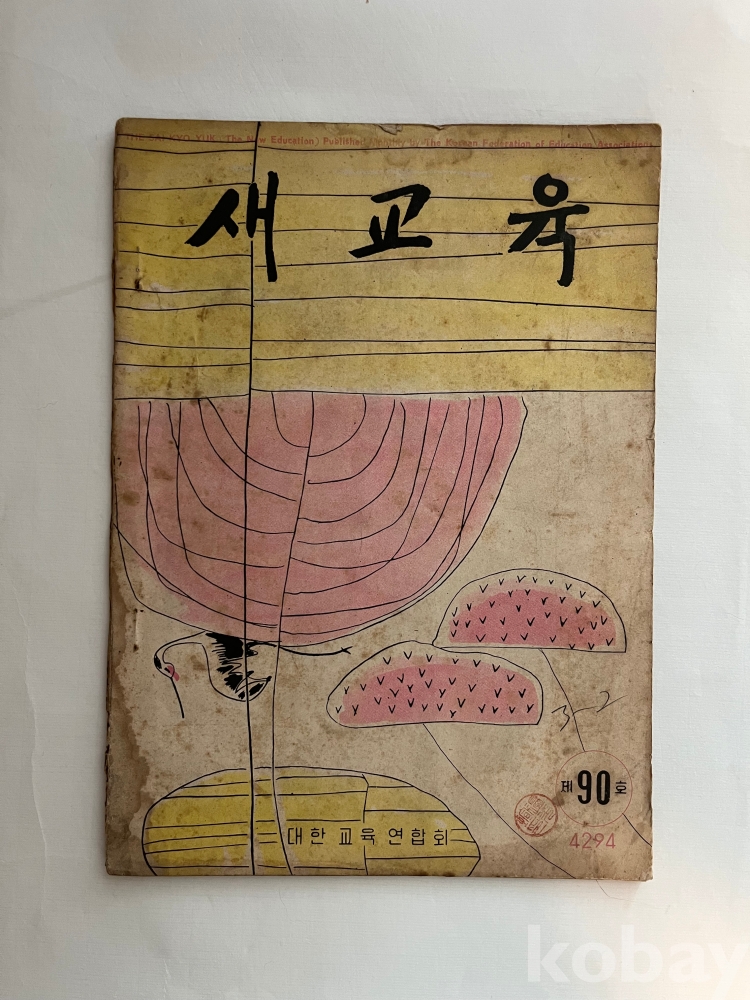 THE SAI KYO YUK (The New Education) Published Monthly by The Korean Federation of Education Associations
새 교 육
3-2
제 90 호
4294
대한 교육 연합회
kobay